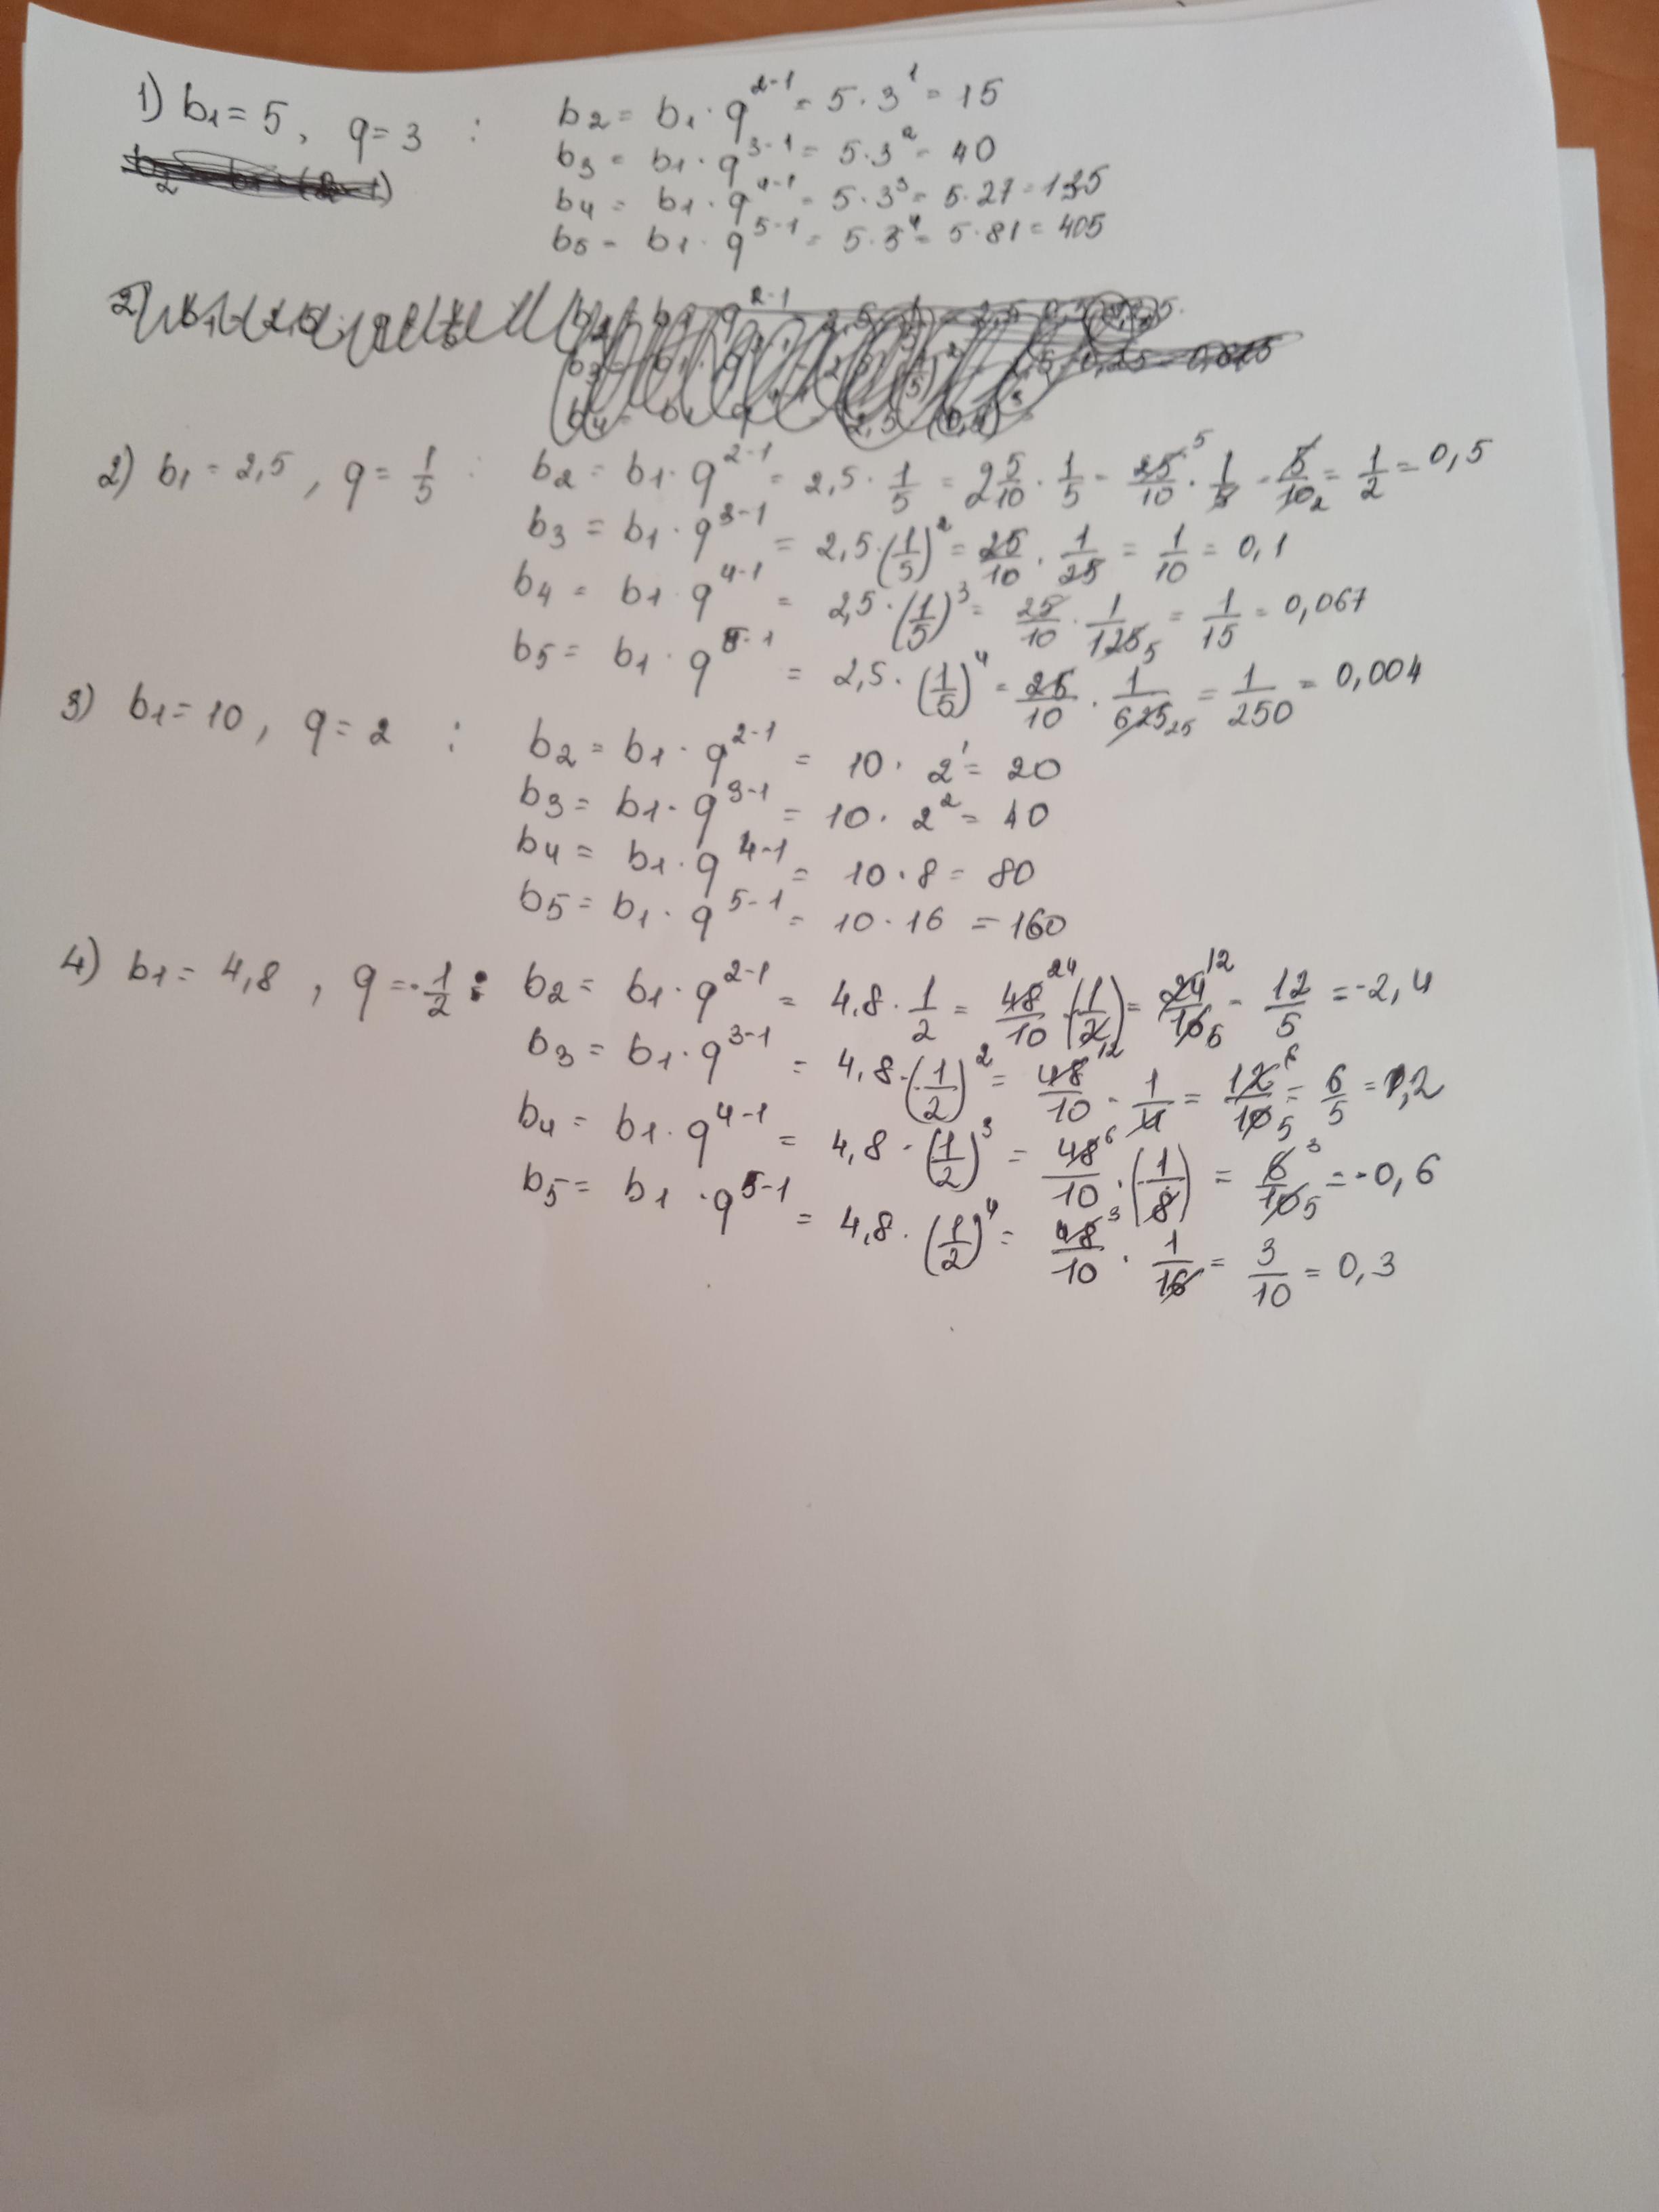 1) b₁ = 5, q = 3 : b₂ = b₁ · q²⁻¹ = 5 · 3¹ = 15
b₃ = b₁ · q³⁻¹ = 5 · 3² = 40
b₄ = b₁ · q⁴⁻¹ = 5 · 3³ = 5 · 27 = 135
b₅ = b₁ · q⁵⁻¹ = 5 · 3⁴ = 5 · 81 = 405
2) b₁ = 2,5, q = 1/5 : b₂ = b₁ · q²⁻¹ = 2,5 · 1/5 = 2 5/10 · 1/5 = 25/10 · 1/5 = 5/10 = 1/2 = 0,5
b₃ = b₁ · q³⁻¹ = 2,5 · (1/5)² = 25/10 · 1/25 = 1/10 = 0,1
b₄ = b₁ · q⁴⁻¹ = 2,5 · (1/5)³ = 25/10 · 1/125 = 1/15 = 0,067
b₅ = b₁ · q⁵⁻¹ = 2,5 · (1/5)⁴ = 25/10 · 1/625 = 1/250 = 0,004
3) b₁ = 10, q = 2 : b₂ = b₁ · q²⁻¹ = 10 · 2¹ = 20
b₃ = b₁ · q³⁻¹ = 10 · 2² = 40
b₄ = b₁ · q⁴⁻¹ = 10 · 8 = 80
b₅ = b₁ · q⁵⁻¹ = 10 · 16 = 160
4) b₁ = 4,8, q = -1/2 : b₂ = b₁ · q²⁻¹ = 4,8 · 1/2 = 48/10 (-1/2) = 24/10 = 12/5 = -2,4
b₃ = b₁ · q³⁻¹ = 4,8 · (-1/2)² = 48/10 · 1/4 = 12/10 = 6/5 = 1,2
b₄ = b₁ · q⁴⁻¹ = 4,8 · (-1/2)³ = 48/10 · (-1/8) = 6/10 = -0,6
b₅ = b₁ · q⁵⁻¹ = 4,8 · (1/2)⁴ = 48/10 · 1/16 = 3/10 = 0,3